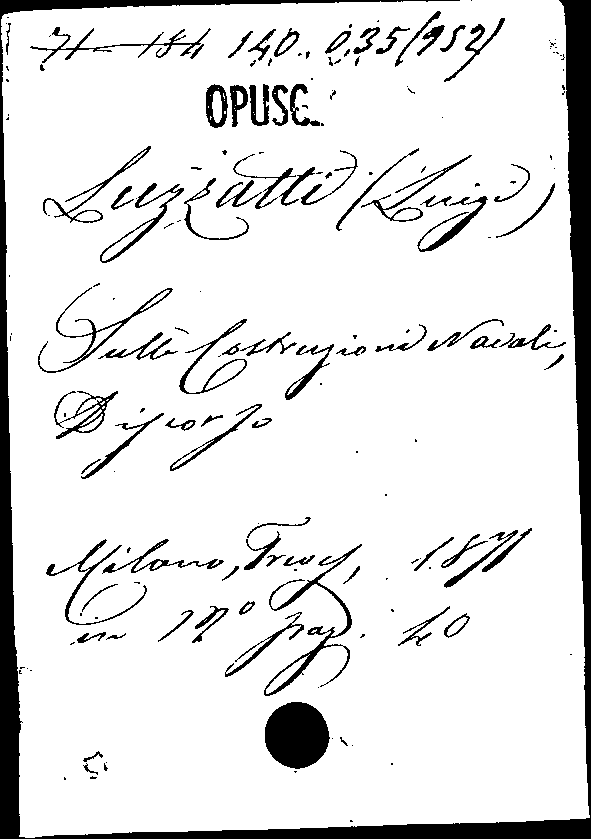 71 184 140. 035 (952)
OPUSC.
Luzzatti (Luigi)
Sulle Costruzioni Navali,
Discorso
Milano, Treves, 1871
in 12° pag. 40